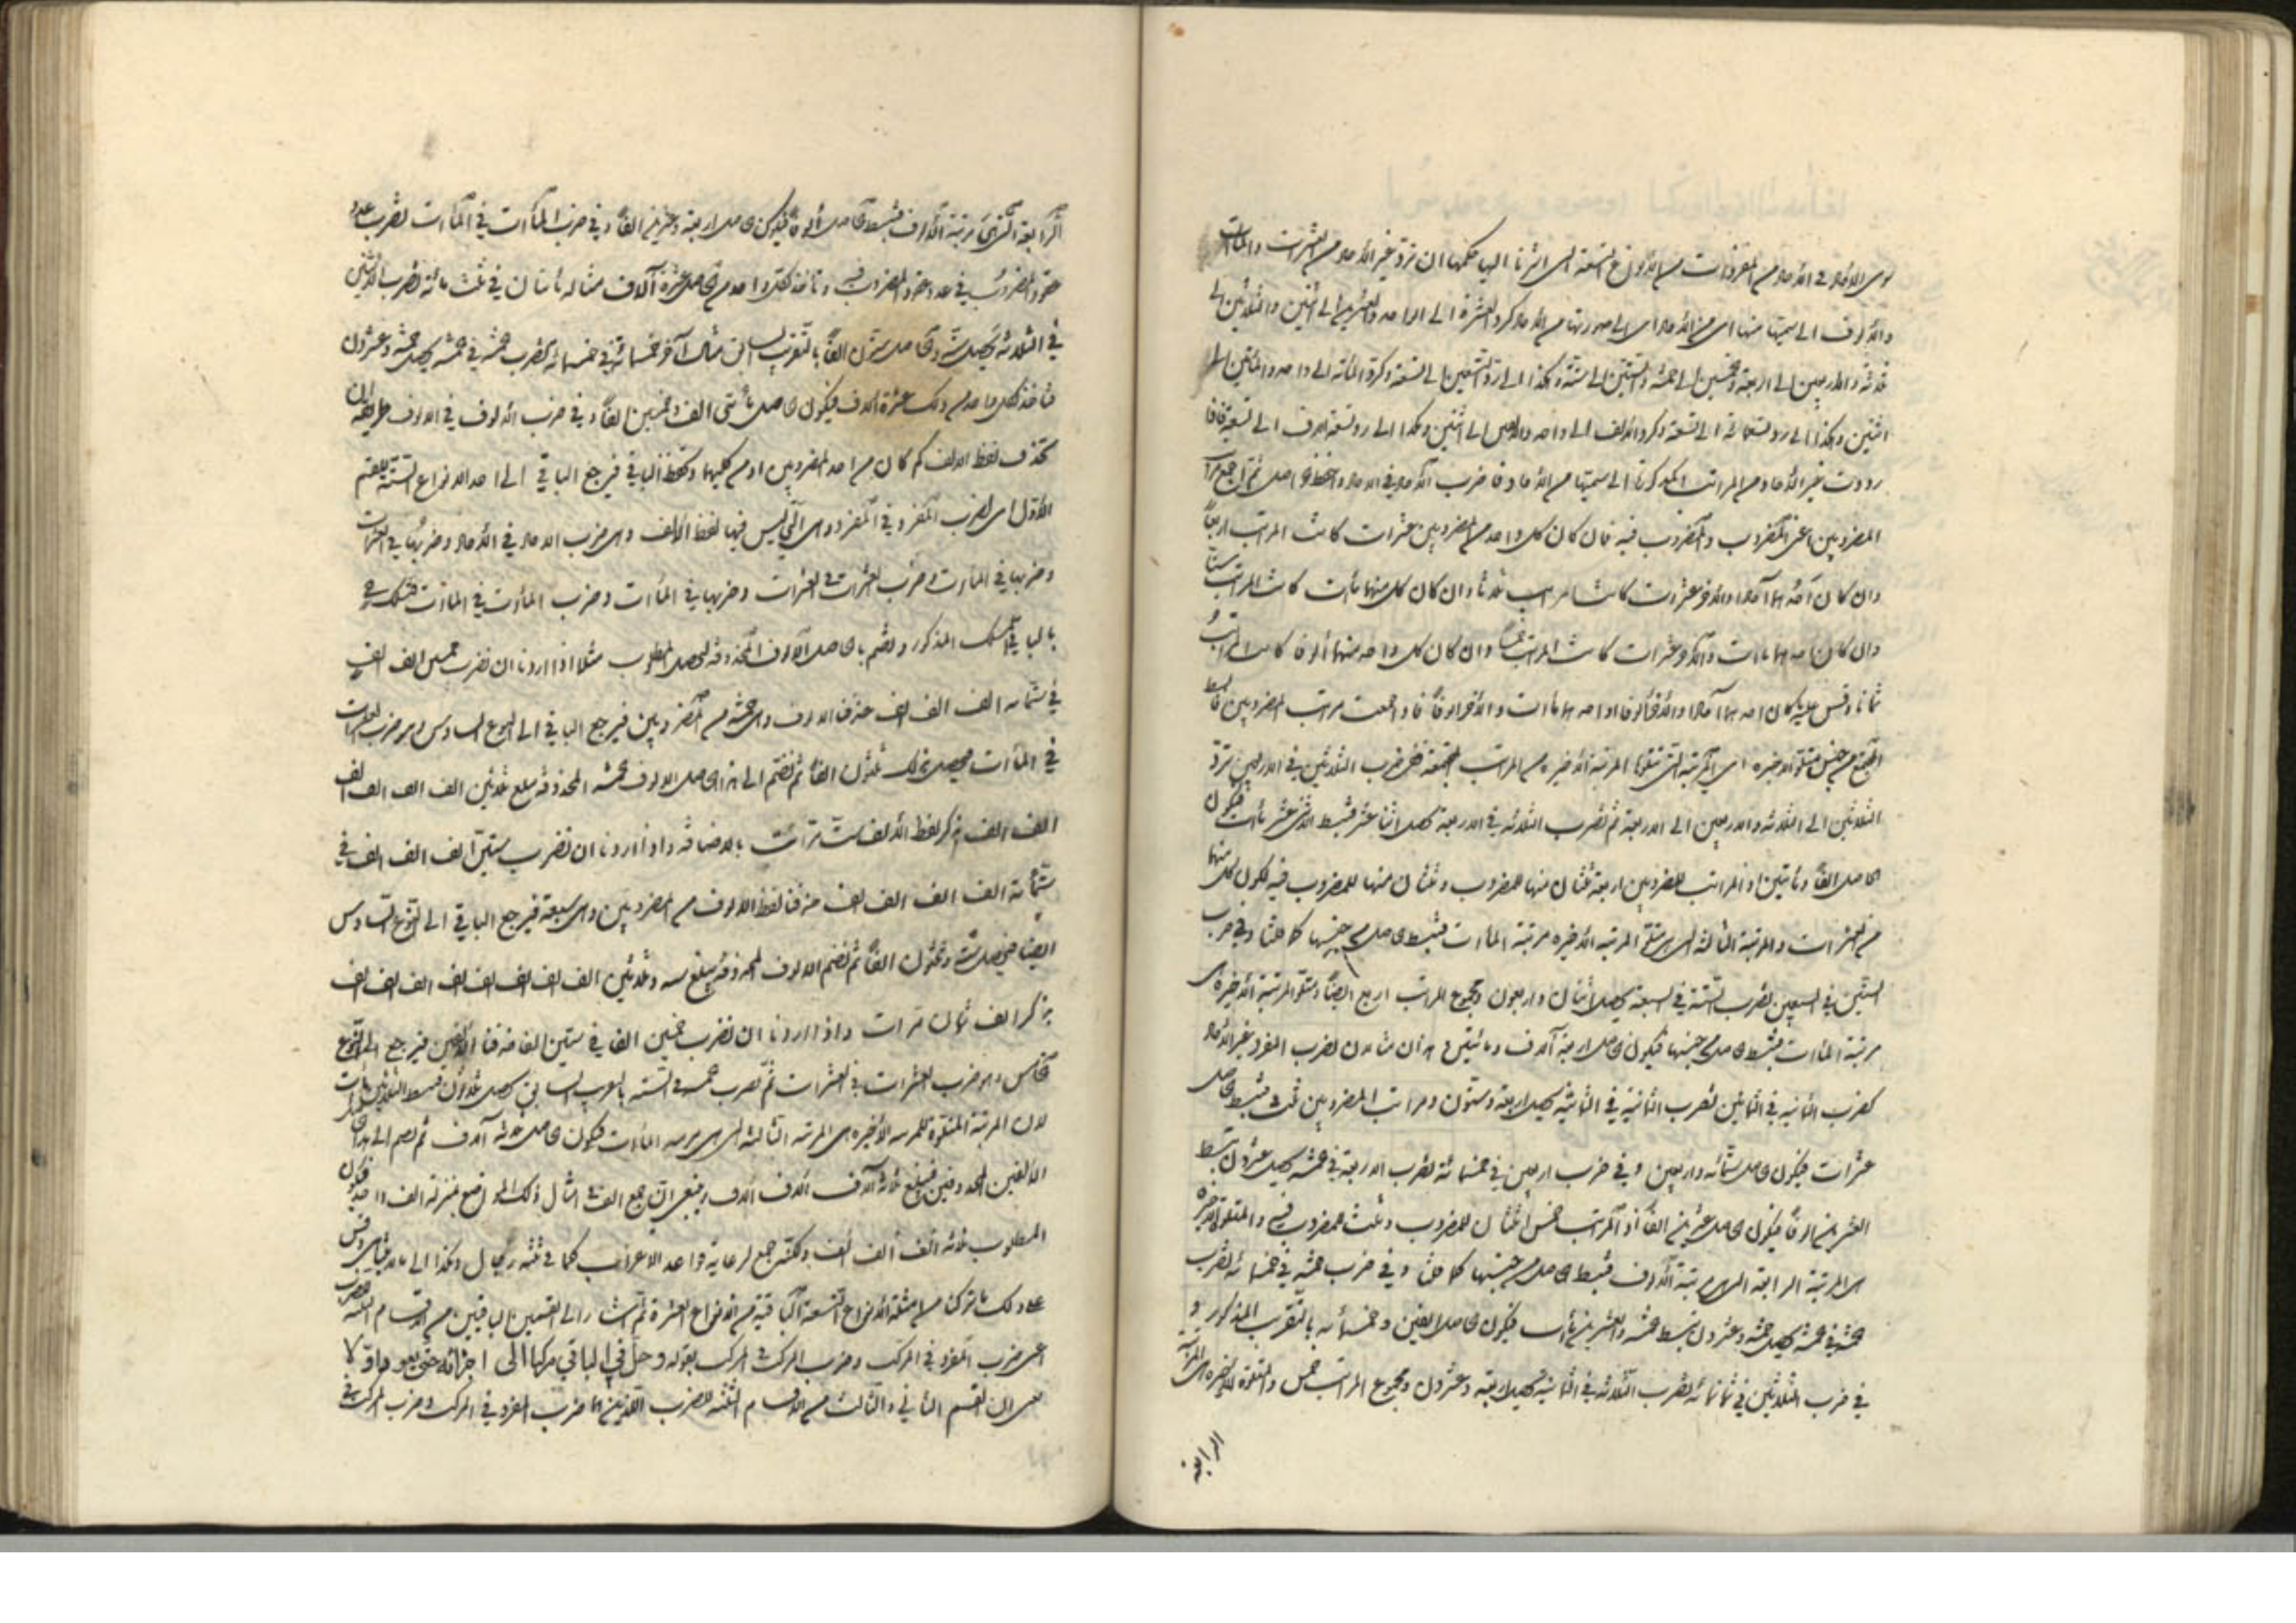 سوى الآحاد في الآحاد من المفردات من الأنواع التسعة التي اشرنا اليها حكمها ان ترد غير الآحاد من العشرات والمآت
والألوف الى سميتها منها اى من الآحاد اى الى صورتها من الآحاد كرد العشرة الى الواحد والعشرين الى اثنين والثلاثين الى
ثلاثة والاربعين الى اربعة والخمسين الى خمسة والستين الى ستة وهكذا الى رد التسعين الى تسعة وكرد المائة الى واحد والمائتين الى
اثنين وهكذا الى رد تسعمائة الى تسعة وكرد الالف الى واحد والالفين الى اثنين وهكذا الى رد تسعة الاف الى تسعة فاذا
رددت غير الآحاد من المراتب الى سميتها من الآحاد فاضرب الآحاد في الآحاد واحفظ الحاصل ثم اجمع مراتب
المضروبين اعنى المضروب والمضروب فيه فان كان كل واحد من المضروبين عشرات كانت المراتب اربعا
وان كان احدهما آحادا والآخر عشرات كانت المراتب ثلاثا وان كان كل منهما مآت كانت المراتب ستا
وان كان احدهما مآت والآخر عشرات كانت المراتب خمسا وان كان كل واحد منهما ألوفا كانت المراتب
ثمانا وقس عليه ان كان احدهما آحادا والآخر ألوفا او احدهما مآت والآخر الوفا فاذا جمعت مراتب المضروبين فابسط
المجتمع من جنس متلو الاخيرة اى المرتبة التى تتلوها المرتبة الاخيرة من المراتب المجتمعة ففى ضرب الثلاثين في الاربعين ترد
الثلاثين الى الثلاثة والاربعين الى الاربعة ثم تضرب الثلاثة في الاربعة يحصل اثنا عشر فتبسط الاثنى عشر مآت فيكون
الحاصل الفا ومائتين اذ المراتب للمضروبين اربعة ثنتان منها للمضروب وثنتان منها للمضروب فيه لكون كل منهما
من العشرات والمرتبة الثالثة التى هى متلو المرتبة الاخيرة مرتبة المآت فتبسط الحاصل من جنسها كما قلنا وفي ضرب
الستين في السبعين تضرب الستة في السبعة يحصل اثنان واربعون ومجموع المراتب اربع ايضا ومتلو المرتبة الاخيرة هى
مرتبة المآت فتبسط الحاصل من جنسها فيكون الحاصل اربعة آلاف ومائتين وهذان مثالان لضرب المفرد غير الآحاد
كضرب الثمانية في الثمانين تضرب الثمانية في الثمانية يحصل اربعة وستون ومراتب المضروبين ثلث فتبسط الحاصل
عشرات فيكون الحاصل ستمائة واربعين وفي ضرب اربعين في خمسمائة تضرب الاربعة في خمسة يحصل عشرون تبسط
العشرين الوفا فيكون الحاصل عشرين الفا اذ المراتب خمس اثنتان للمضروب وثلث للمضروب فيه والمتلوة للاخيرة
هى المرتبة الرابعة التى هى مرتبة الالوف فتبسط الحاصل من جنسها كما قلنا وفي ضرب خمسة في خمسمائة تضرب
خمسة في خمسة يحصل خمسة وعشرون تبسط الخمسة والعشرين مآت فيكون الحاصل الفين وخمسمائة بالتقرب المذكور و
في ضرب الثلاثين في ثمانمائة تضرب الثلاثة في الثمانية يحصل اربعة وعشرون ومجموع المراتب خمس والمتلوة للاخيرة هى المرتبة
الرابعة
الرابعة التى هى مرتبة الالوف فتبسط الحاصل الوفا فيكون الحاصل اربعة وعشرين الفا وفي ضرب المآت في المآت تضرب عدد
عقود المضروب في عدد عقود المضروب فيه وتأخذ لكل واحد من الحاصل عشرة آلاف مثاله مائتان في ثلث مائة تضرب الاثنين
في الثلاثة يحصل ستة والحاصل ستون الفا بالتقريب السابق مثال آخر خمسمائة في خمسمائة تضرب خمسة في خمسة يحصل خمسة وعشرون
فتأخذ لكل واحد من ذلك عشرة الاف فيكون الحاصل مائتى الف وخمسين الفا وفي ضرب الالوف في الالوف طريقه ان
تحذف لفظ الالف كم كان من احد المضروبين او من كليهما وتحفظ الباقي فيرجع الباقي الى احد الانواع الستة للقسم
الاول اى لضرب المفرد في المفرد وهى التى ليس فيها لفظ الالف وهى ضرب الآحاد في الآحاد وضربها في العشرات
وضربها في المآت وضرب العشرات في العشرات وضربها في المآت وضرب المآت في المآت فتسلك في
الباقي المسلك المذكور وتضم بالحاصل الالوف المحذوفة ليحصل المطلوب مثلا اذا اردنا ان نضرب خمسين الف الف
في ستمائة الف الف الف حذفنا الالوف وهى خمسة من المضروبين فيرجع الباقي الى النوع السادس وهو ضرب العشرات
في المآت فيحصل ثلثون الفا ثم نضم الى هذا الحاصل الالوف الخمسة المحذوفة يبلغ ثلاثين الف الف الف الف
الف الف بذكر لفظ الالف ست مرات بالاضافة واذا اردنا ان نضرب ستين الف الف الف في
ستمائة الف الف الف الف حذفنا لفظ الالوف من المضروبين وهى سبعة فيرجع الباقي الى النوع السادس
ايضا فيحصل ستة وثلثون الفا ثم نضم الالوف المحذوفة يبلغ ستة وثلاثين الف الف الف الف الف الف الف الف
بذكر الف ثمان مرات واذا اردنا ان نضرب خمسين الفا في ستين الفا حذفنا الالفين فيرجع الى النوع
الخامس وهو ضرب العشرات في العشرات ثم نضرب خمسة في الستة يحصل ثلاثون فنبسط الثلاثين مآت
لان المرتبة المتلوة للمرتبة الاخيرة هى المرتبة الثالثة التى هى مرتبة المآت فيكون الحاصل ثلاثة آلاف ثم نضم الى هذا الحاصل
الالفين المحذوفين فيبلغ ثلاثة آلاف الاف الاف وينبغى ان جمع الالف في امثال ذلك المواضع بمنزلة الف واحد فيكون
المطلوب ثلاثة الف الف الف ولكنه جمع لرعاية قواعد الاعراب كما في ثلثة رجال وهكذا الى ما لا يتناهى وقس
على ذلك ما تركنا من امثلة الانواع التسعة الباقية من الانواع العشرة ثم اشار الى القسمين الباقيين من اقسام الضرب
اعنى ضرب المفرد في المركب وضرب المركب في المركب بقوله وحل في الباقي مركبا الى اجزائه حتى يعود مفردا
يعنى ان القسم الثاني والثالث من الاقسام الثلثة للضرب اللذين هما ضرب المفرد في المركب وضرب المركب في